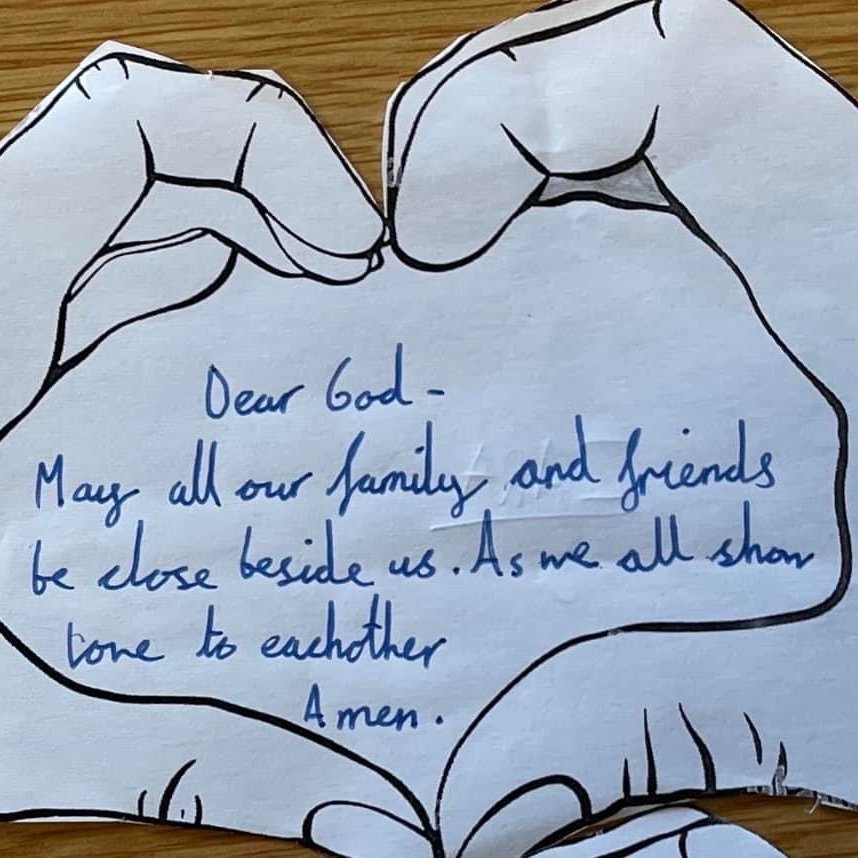 Dear God -
May all our family and friends
be close beside us. As we all show
love to eachother
Amen.